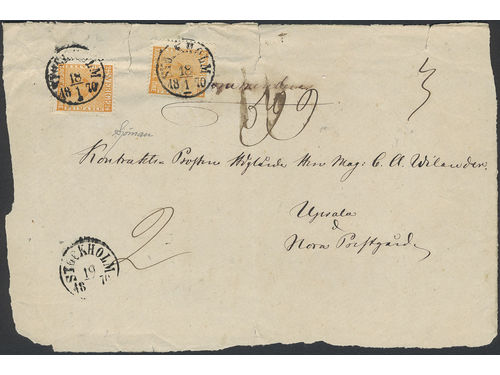 STOCKHOLM
18
1
18 70
STOCKHOLM
18
1
18 70
3
Sjöman
Kontrakts Prosten Höglärde Herr Mag: C. A. Wilander.
Upsala
&
Nora Postgård
2
STOCKHOLM
19
18 70